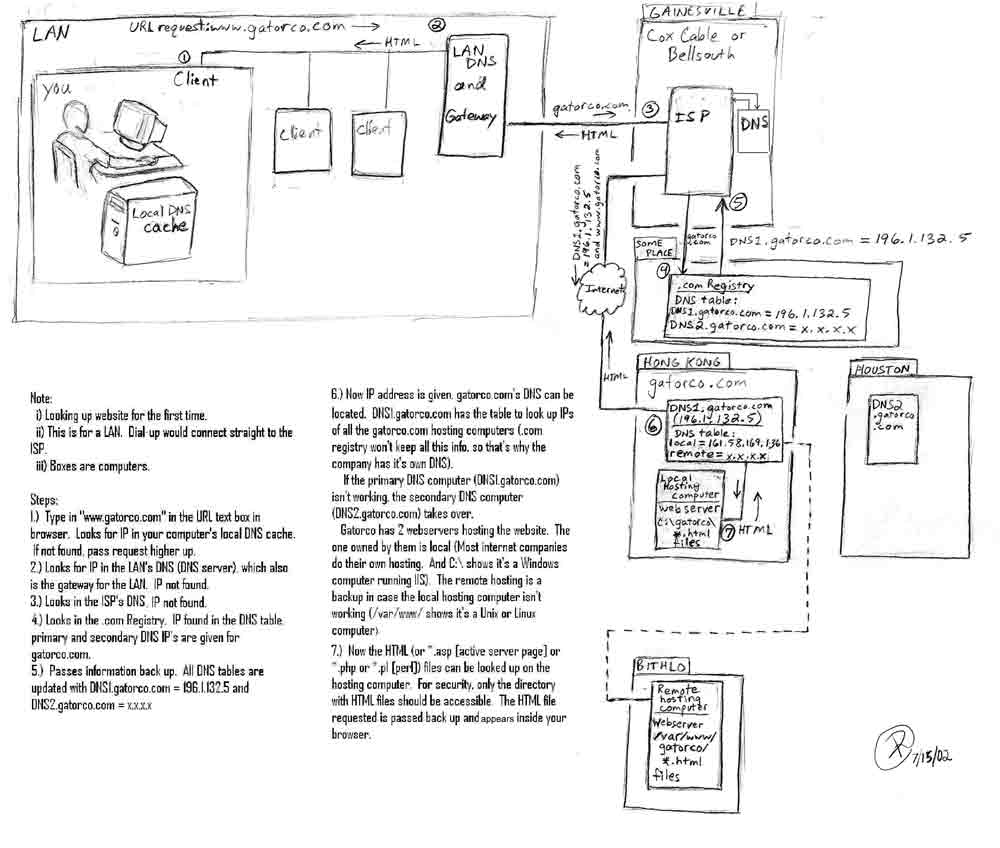 LAN
URL request: www.gatorco.com →
← HTML
①
②
Client
you
Local DNS
cache
Client
Client
LAN
DNS
and
Gateway
gatorco.com
→
← HTML
GAINESVILLE
Cox Cable or
Bellsouth
③
ISP
DNS
← DNS1.gatorco.com
= 196.1.132.5
and www.gatorco.com
Internet
HTML
gatorco
.com
⑤
DNS1.gatorco.com = 196.1.132.5
SOME
PLACE
④
.com Registry
DNS table:
DNS1.gatorco.com = 196.1.132.5
DNS2.gatorco.com = x.x.x.x
HONG KONG
gatorco.com
⑥
DNS1.gatorco.com
(196.1.132.5)
DNS table:
local = 161.58.169.136
remote = x.x.x.x
Local
Hosting
Computer
Webserver
C:\gatorco\
*.html
files
⑦
HTML
HOUSTON
DNS2
.gatorco
.com
BITHLO
Remote
hosting
computer
Webserver
/var/www/
gatorco/
*.html
files
7/15/02
Note:
i) Looking up website for the first time.
ii) This is for a LAN. Dial-up would connect straight to the
ISP.
iii) Boxes are computers.
Steps:
1.) Type in "www.gatorco.com" in the URL text box in
browser. Looks for IP in your computer's local DNS cache.
If not found, pass request higher up.
2.) Looks for IP in the LAN's DNS (DNS server), which also
is the gateway for the LAN. IP not found.
3.) Looks in the ISP's DNS, IP not found.
4.) Looks in the .com Registry. IP found in the DNS table,
primary and secondary DNS IP's are given for
gatorco.com.
5.) Passes information back up. All DNS tables are
updated with DNS1.gatorco.com = 196.1.132.5 and
DNS2.gatorco.com = x.x.x.x
6.) Now IP address is given, gatorco.com's DNS can be
located. DNS1.gatorco.com has the table to look up IPs
of all the gatorco.com hosting computers (.com
registry won't keep all this info, so that's why the
company has it's own DNS).
If the primary DNS computer (DNS1.gatorco.com)
isn't working, the secondary DNS computer
(DNS2.gatorco.com) takes over.
Gatorco has 2 webservers hosting the website. The
one owned by them is local (Most internet companies
do their own hosting. And C:\ shows it's a Windows
computer running IIS). The remote hosting is a
backup in case the local hosting computer isn't
working (/var/www/ shows it's a Unix or Linux
computer)
7.) Now the HTML (or *.asp [active server page] or
*.php or *.pl [perl]) files can be looked up on the
hosting computer. For security, only the directory
with HTML files should be accessible. The HTML file
requested is passed back up and appears inside your
browser.